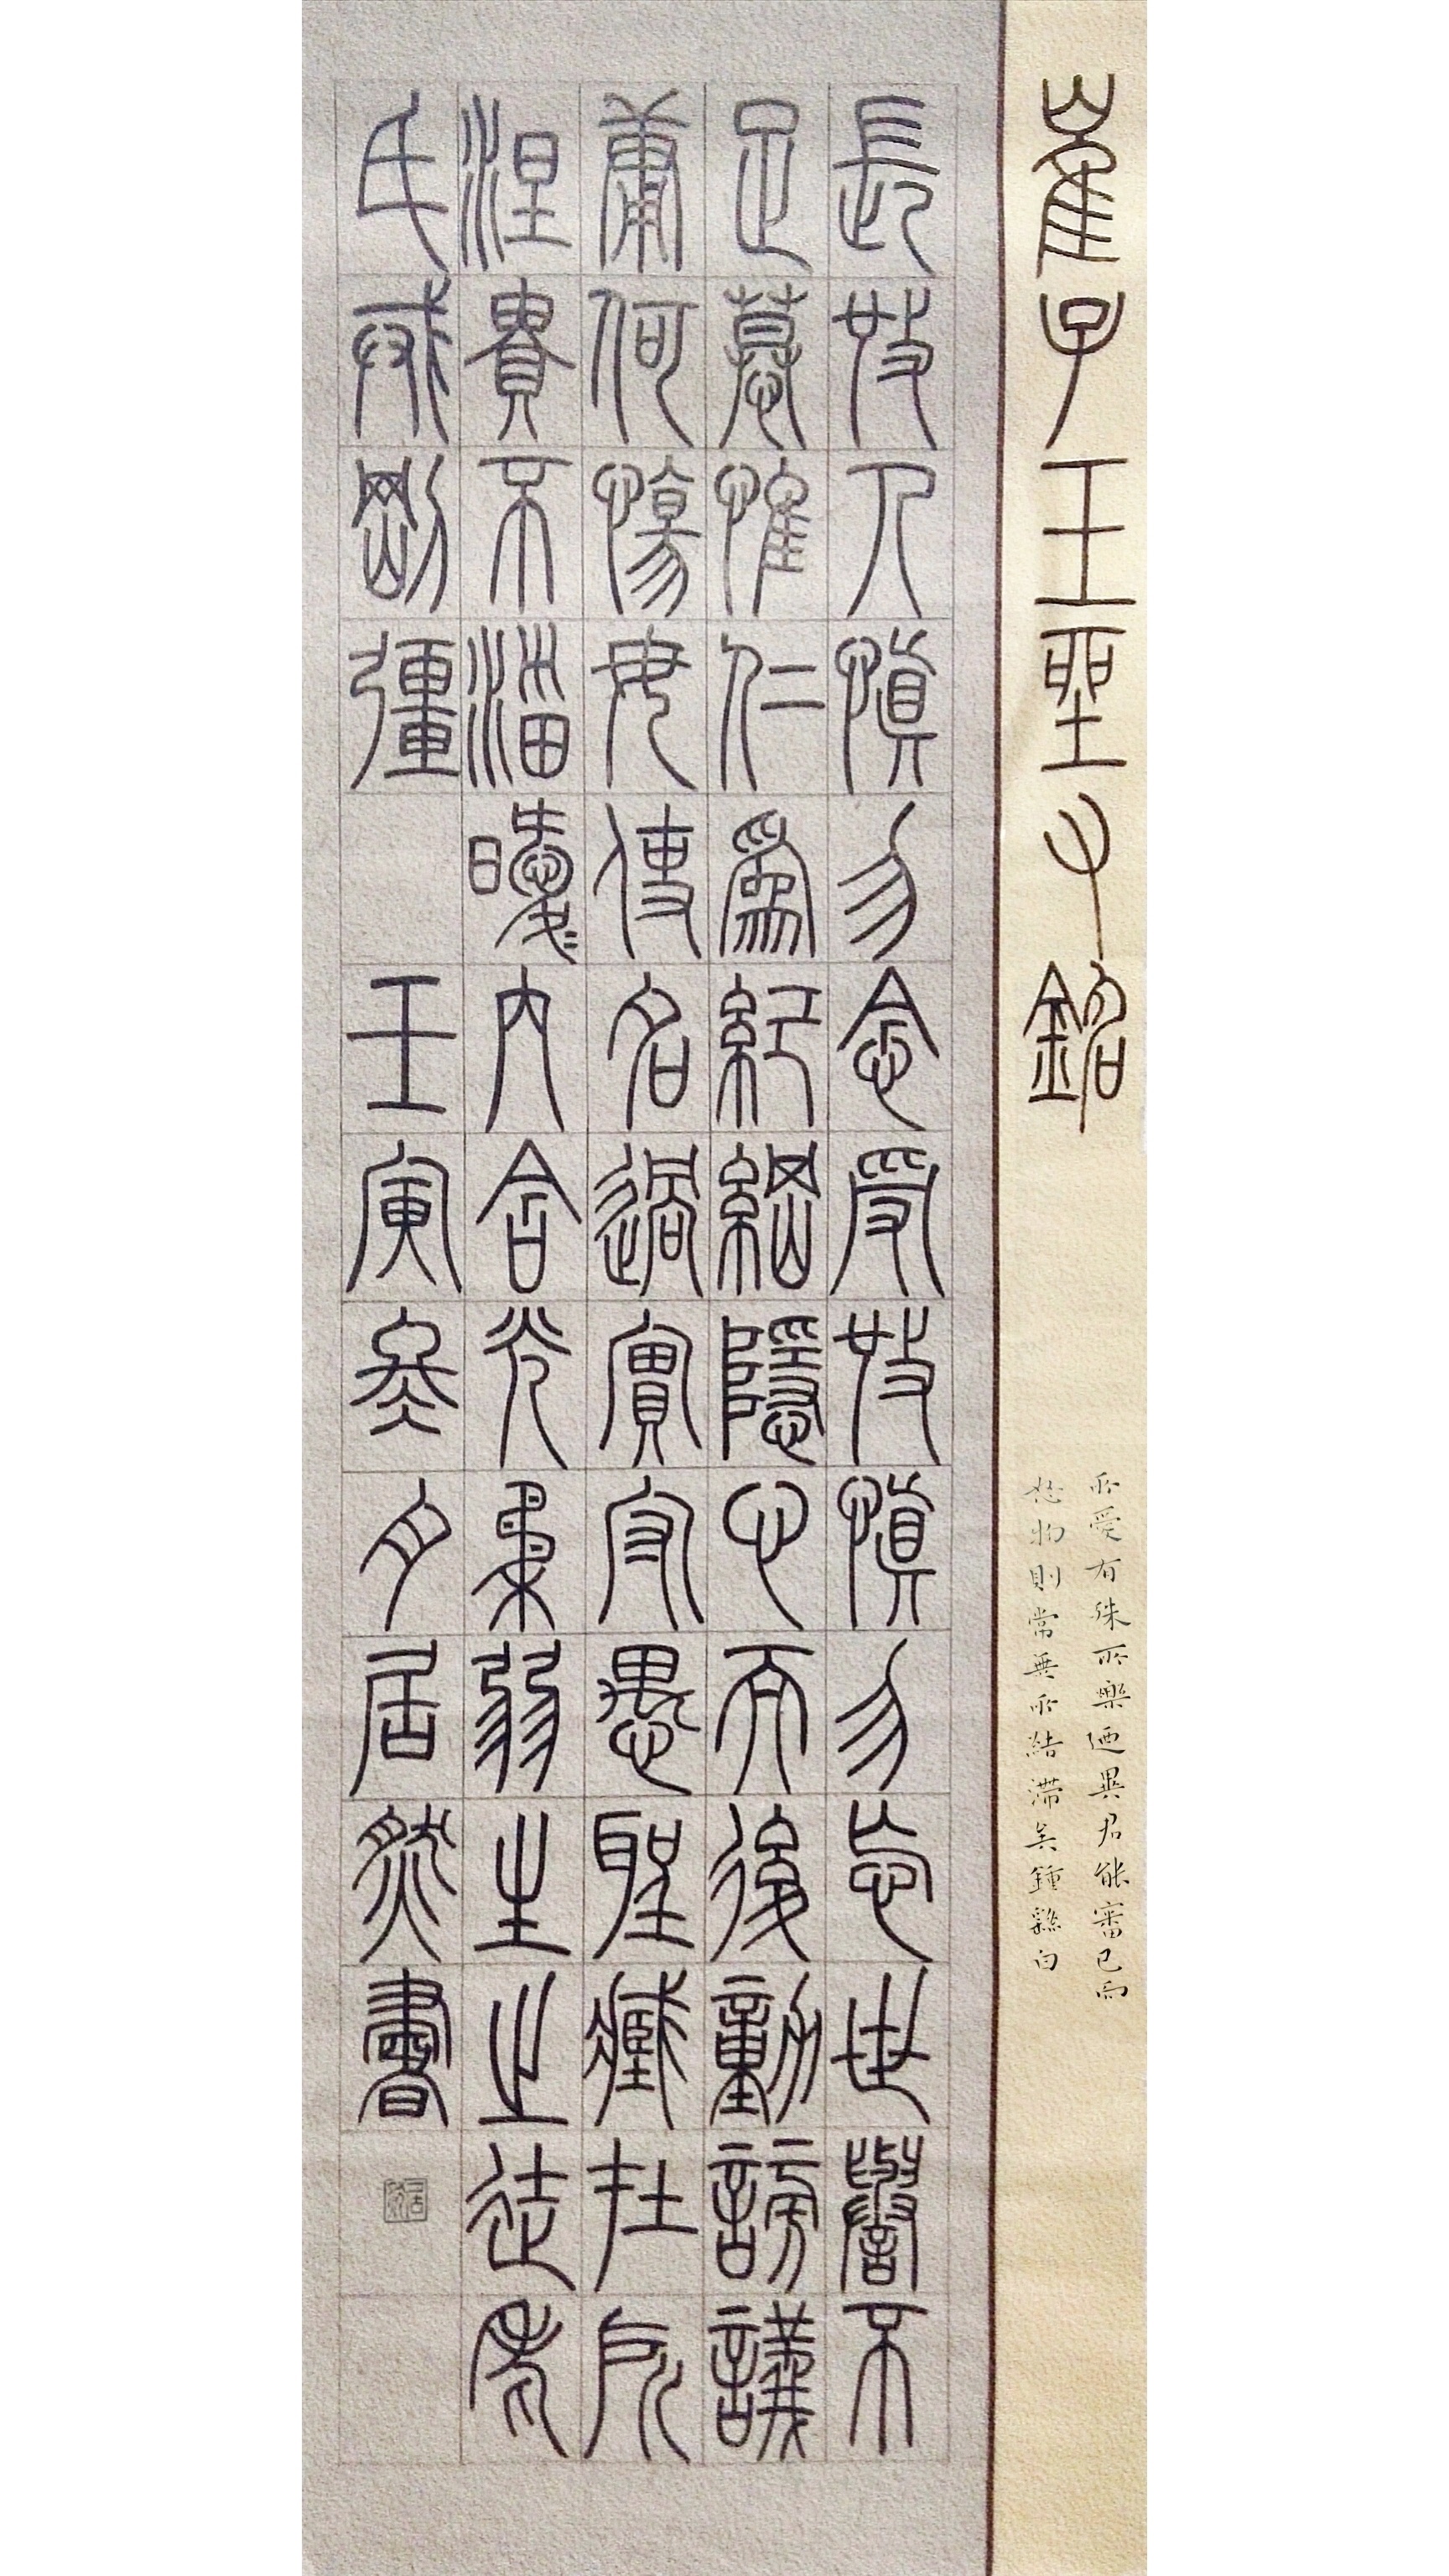 崔子玉坐又銘
所愛有殊所樂迺異君能審己而
恕物則常無所結滯矣鍾繇白
長施人慎勿念受施慎勿忘世譽不
足慕惟仁爲紀綱隱心而後動謗議
庸何傷毋使名過實守愚聖臧在
涅貴不淄曖〻內含光柔弱生之徒老
氏戒剛彊 壬寅月居然書